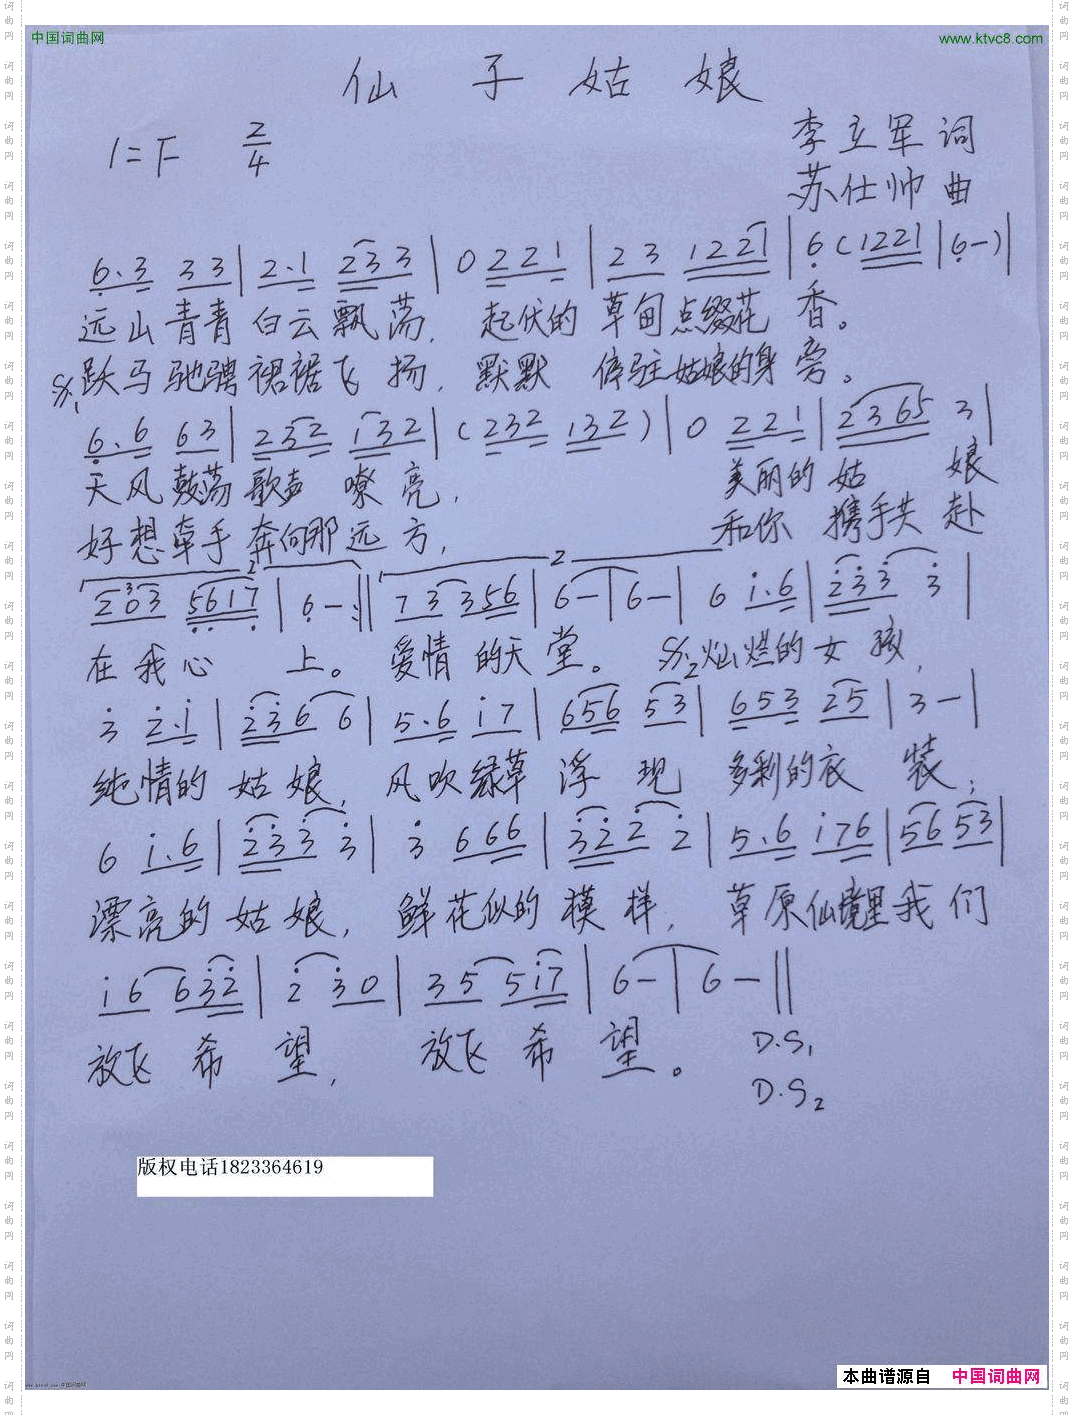 中国词曲网
www.ktvc8.com
仙子姑娘
1=F 2/4
李立军 词
苏仕帅 曲
6.3 33|2.1 233|0221|23 1221|6(1221|6-)|
远山青青 白云飘荡. 起伏的 草甸点缀花 香。
跃马驰骋 裙裾飞 扬. 默默 停驻姑娘的身 旁。
6.6 63|232 132|(232 132)|0221|2365 3|
天风鼓荡 歌声 嘹 亮. 美丽的 姑 娘
好想牵手 奔向那远 方, 和你 携手共 赴
203 5617|6-:‖73 356|6-|6-|6 i.6|233 3|
在我心 上。 爱情 的天 堂。 灿烂的 女 孩,
3 2.i|236 6|5.6 i7|656 53|653 25|3-|
纯情的 姑 娘, 风吹绿草 浮 现 多彩的衣 装;
6 i.6|233 3|3 666|322 2|5.6 i76|56 53|
漂亮的 姑 娘, 鲜花似的 模 样, 草原仙境里我 们
i6 632|2 30|35 5i7|6-|6-‖
放飞 希 望, 放飞 希 望。
D.S1
D.S2
版权电话1823364619
本曲谱源自 中国词曲网